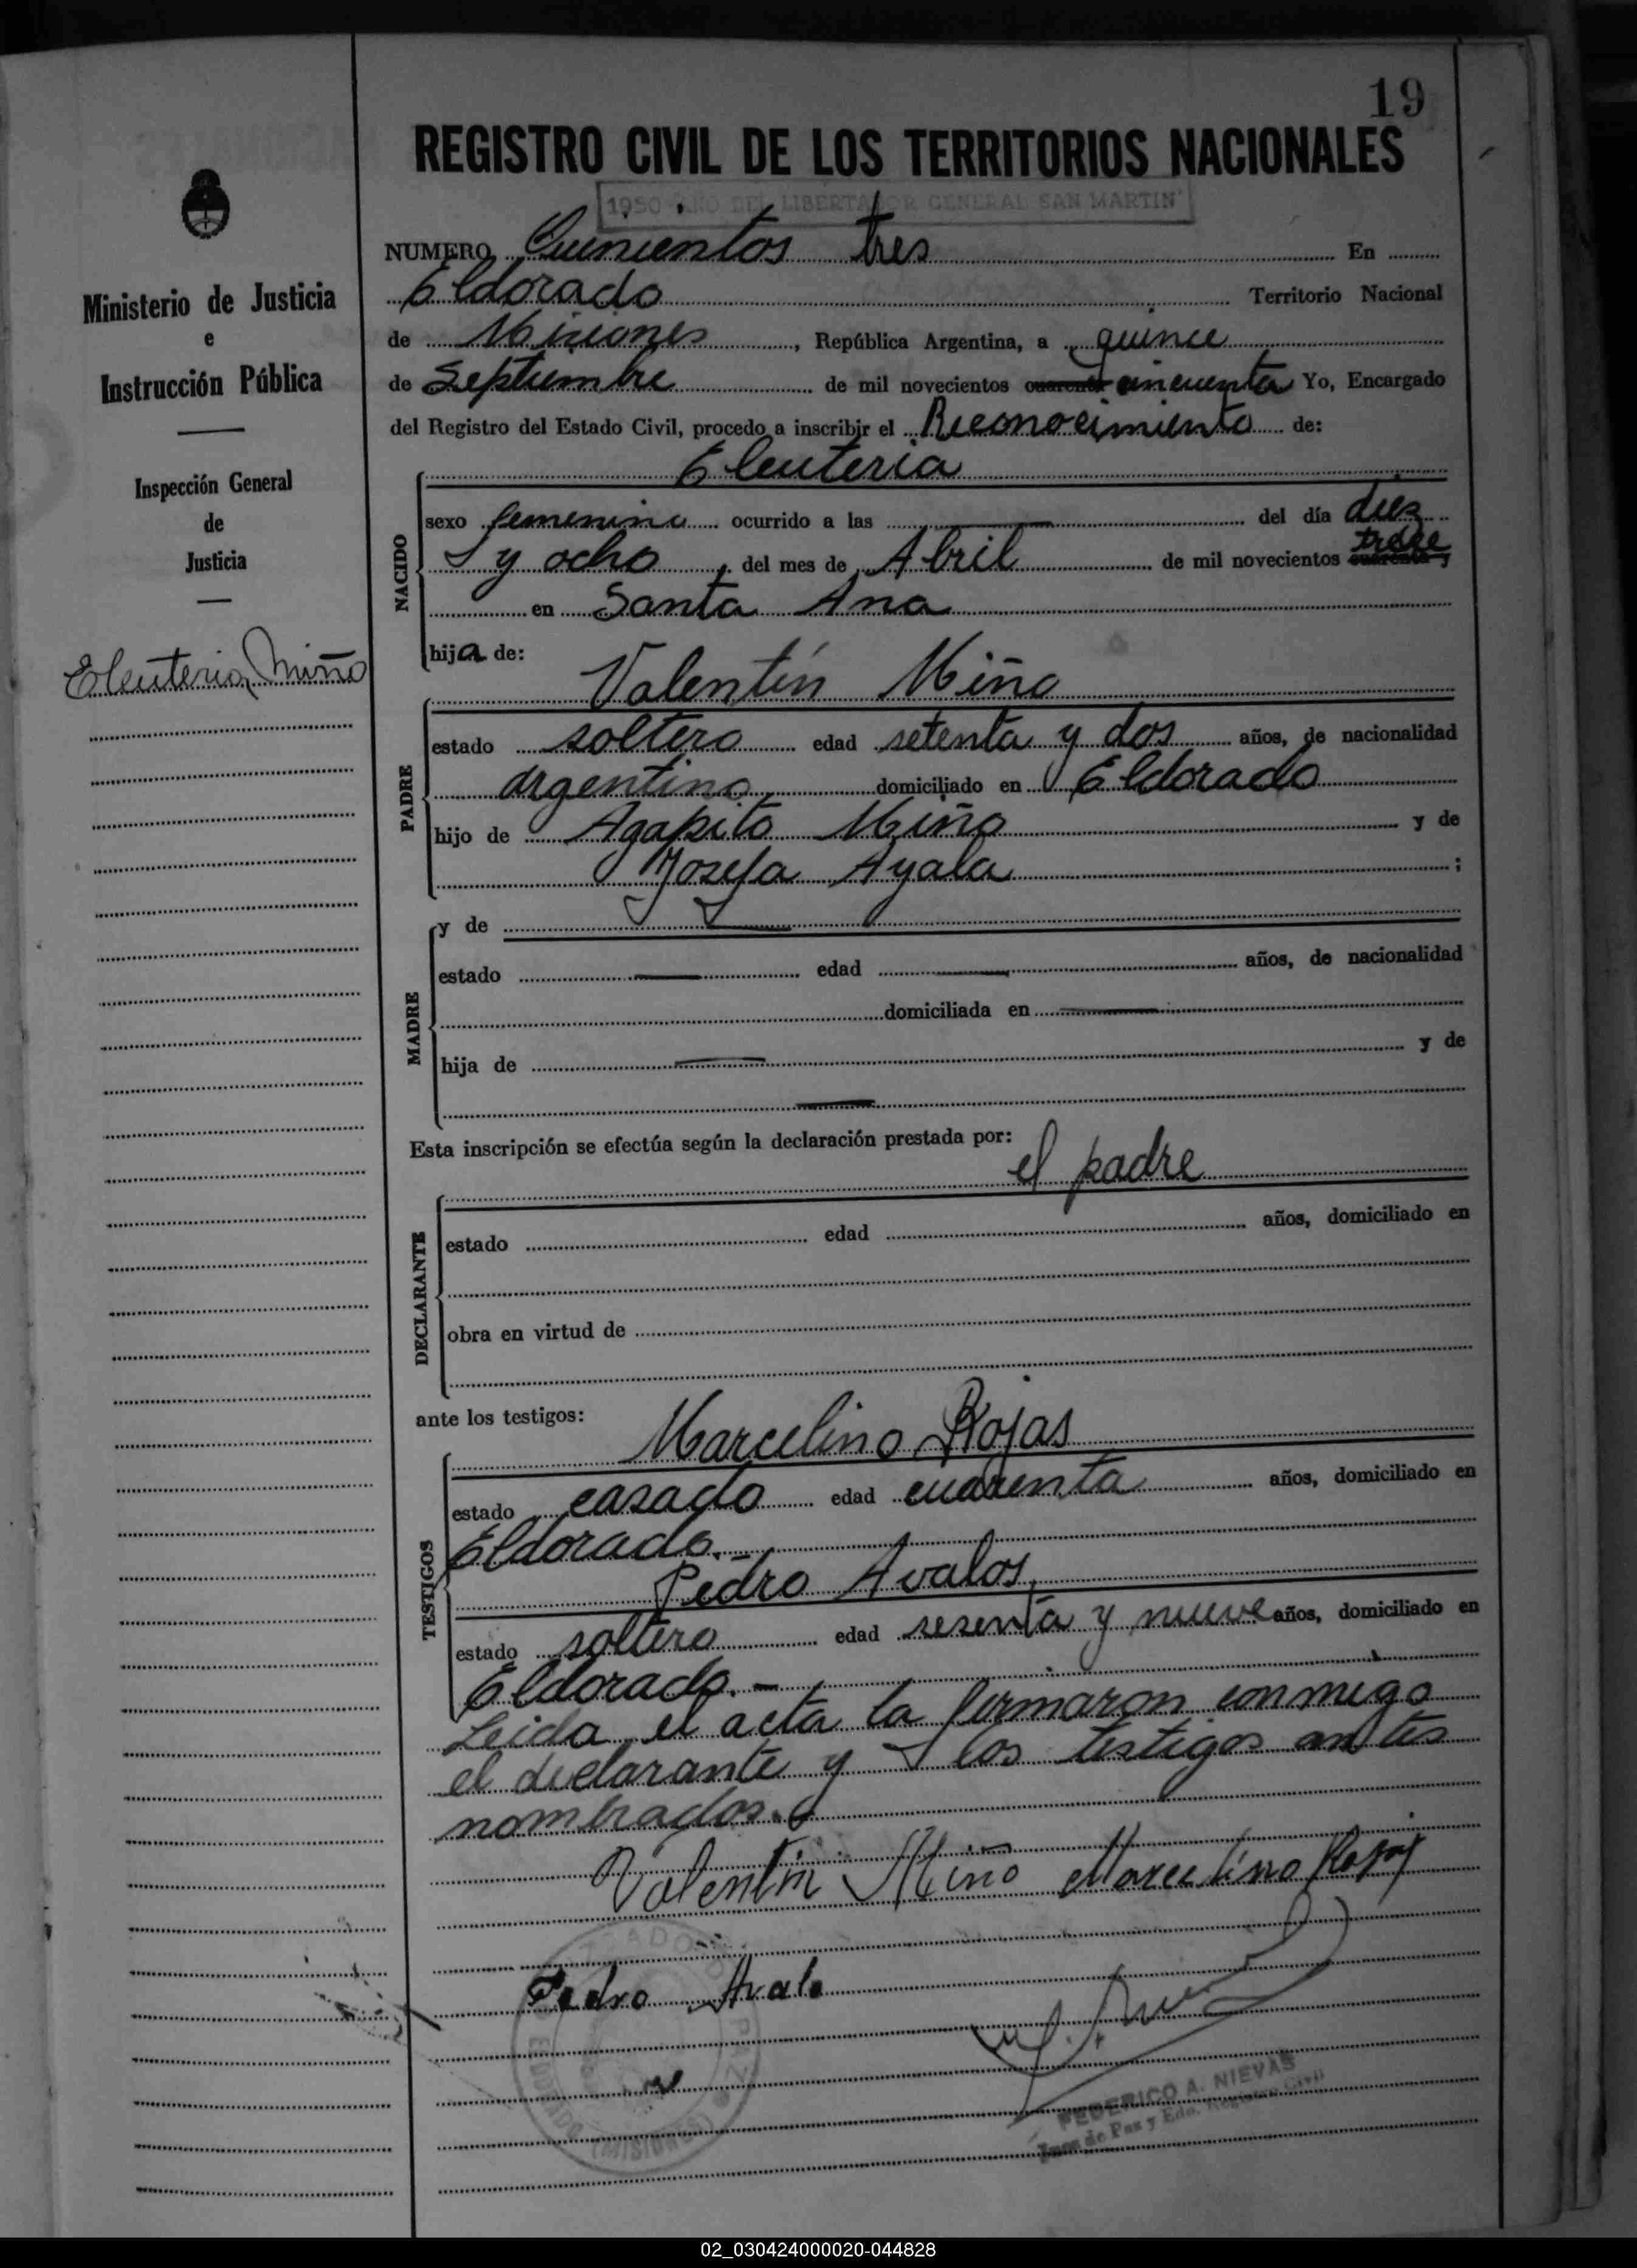 19
REGISTRO CIVIL DE LOS TERRITORIOS NACIONALES
1950 AÑO DEL LIBERTADOR GENERAL SAN MARTIN
Ministerio de Justicia
e
Instrucción Pública
Inspección General
de
Justicia
Eleuteria Miño
NUMERO Quinientos tres En
Eldorado Territorio Nacional
de Misiones, República Argentina, a quince
de Septiembre de mil novecientos cuarenta cincuenta Yo, Encargado
del Registro del Estado Civil, procedo a inscribir el Reconocimiento de:
Eleuteria
NACIDO
sexo femenino ocurrido a las del día diez
y ocho, del mes de Abril de mil novecientos cuarenta y trece
en Santa Ana
hija de:
Valentín Miño
PADRE
estado soltero edad setenta y dos años, de nacionalidad
argentino domiciliado en Eldorado
hijo de Agapito Miño y de
Josefa Ayala ;
MADRE
y de
estado edad años, de nacionalidad
domiciliada en
hija de y de
Esta inscripción se efectúa según la declaración prestada por:
el padre
DECLARANTE
estado edad años, domiciliado en
obra en virtud de
ante los testigos:
Marcelino Rojas
TESTIGOS
estado casado edad cuarenta años, domiciliado en
Eldorado.-
Pedro Avalos,
estado soltero edad sesenta y nueve años, domiciliado en
Eldorado.-
Leida el acta la firmaron conmigo
el declarante y los testigos antes
nombrados.
Valentin Miño Marcelino Rojas
Pedro Avalo
ELDORADO (MISIONES)
FEDERICO A. NIEVAS
Juez de Paz y Edo. Registro Civil
02_030424000020-044828